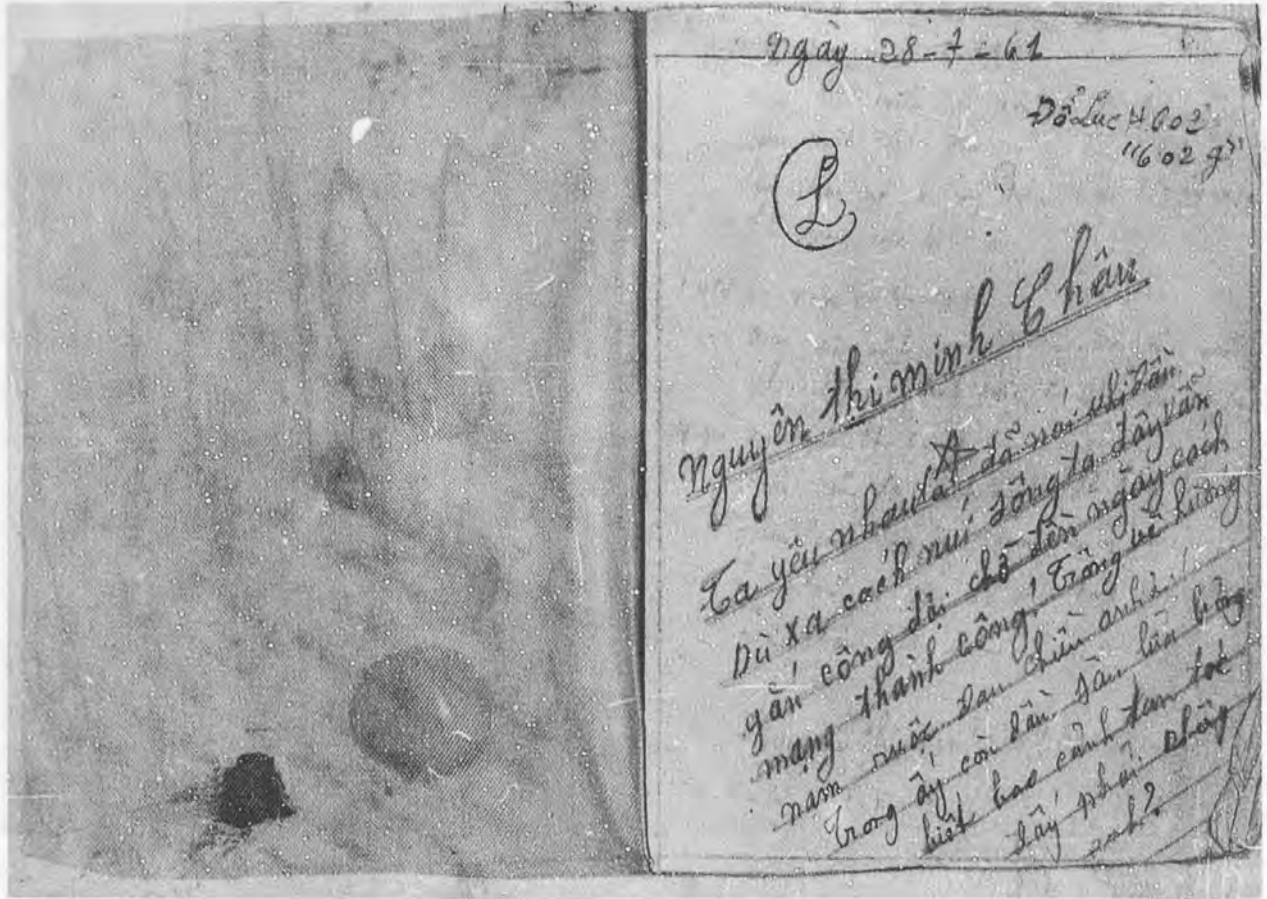 Ngày 28-7-61
602
"602 g"
L
Nguyễn thị minh Châu
Ta yêu nhau đã nói
Dù xa cách núi sông ta đây vẫn
gắn công đợi chờ đến ngày cách
mạng thành công! Trông về hướng
nam ruột đau chiều anh
Trong ấy còn dân lửa
biết bao cảnh tan tóc
đấy phải không
anh?